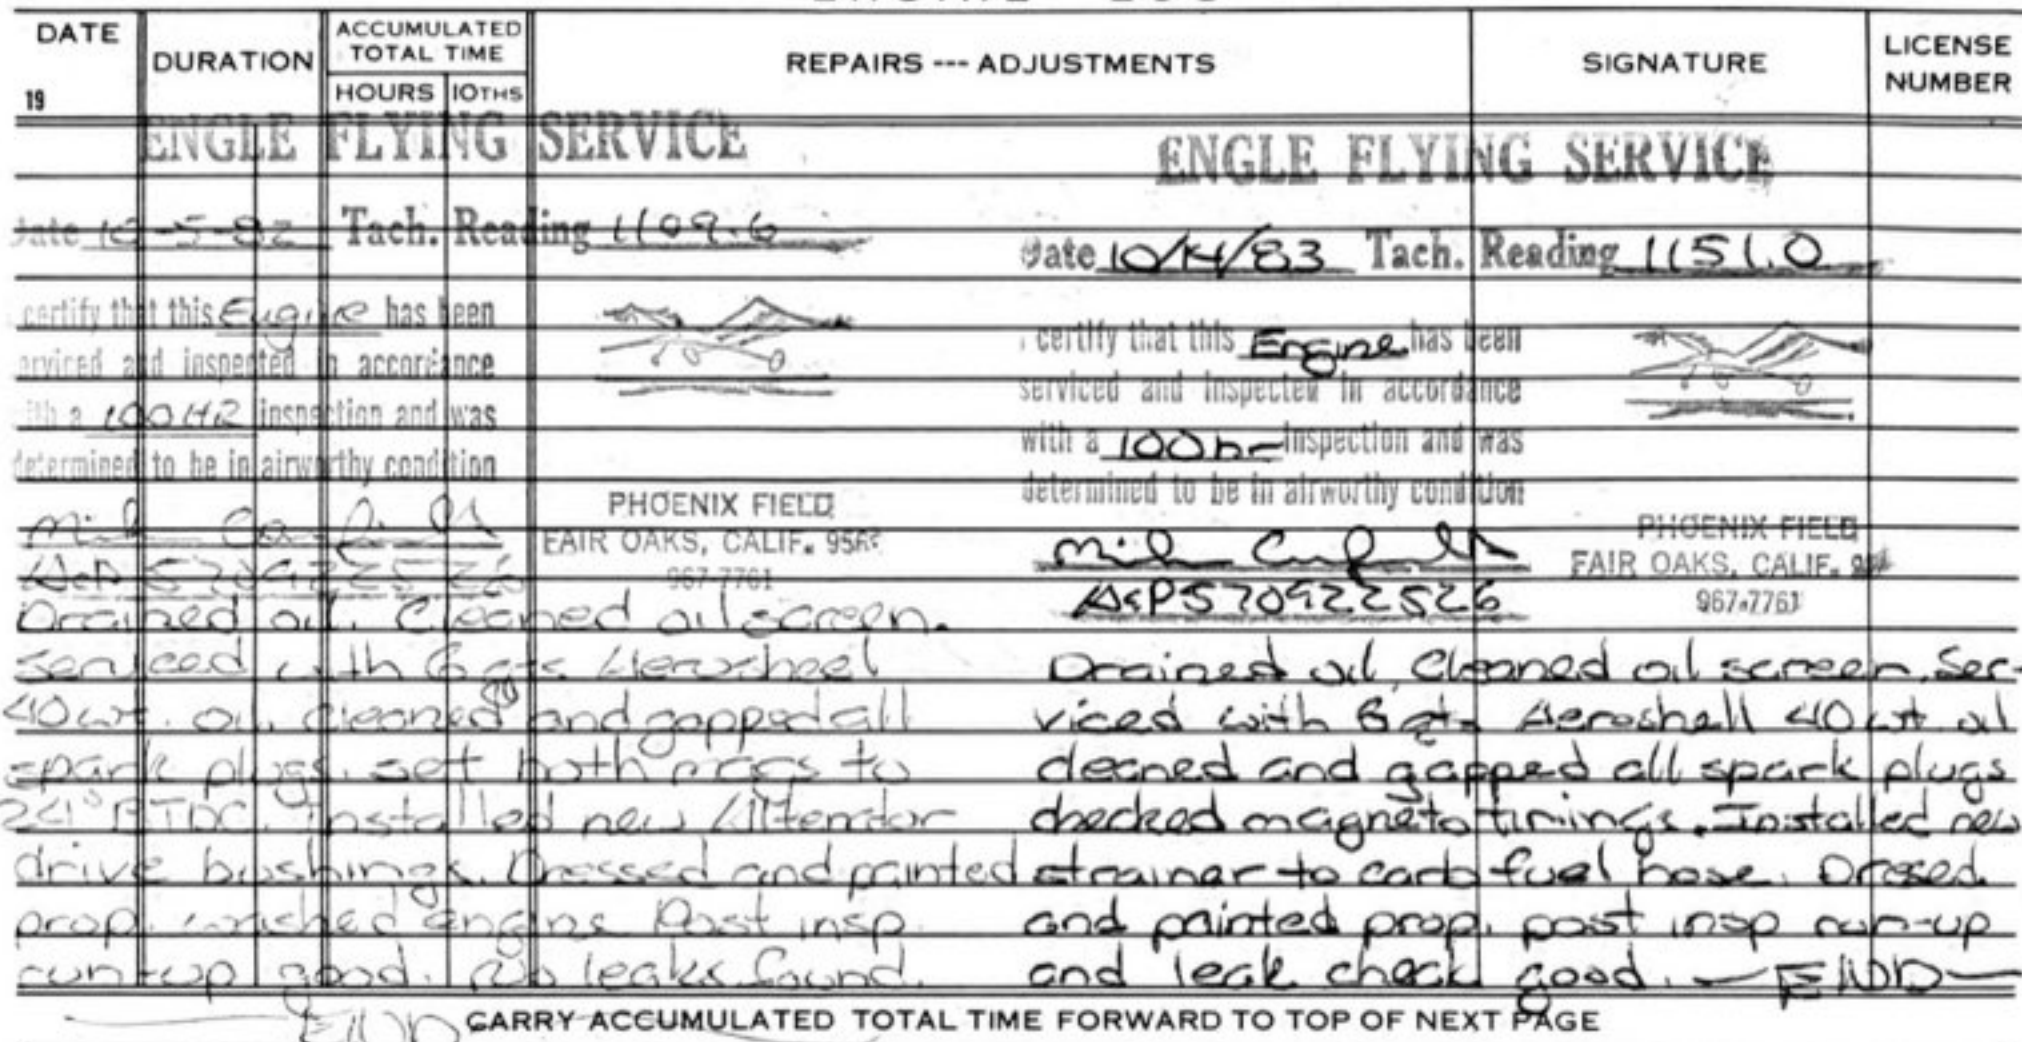 DATE
19
DURATION
ACCUMULATED
TOTAL TIME
HOURS 10THS
REPAIRS --- ADJUSTMENTS
SIGNATURE
LICENSE
NUMBER
ENGLE FLYING SERVICE
Date 10-5-82 Tach. Reading 1109.6
certify that this Engine has been
serviced and inspected in accordance
with a 100 HR inspection and was
determined to be in airworthy condition
PHOENIX FIELD
FAIR OAKS, CALIF.
967-7761
A&P 570922526
Drained oil. Cleaned oil screen.
Serviced with 6 qts Aerosheel
40 wt. oil. Cleaned and gapped all
spark plugs. set both mags to
24° BTDC. Installed new Alternator
drive bushings. Dressed and painted
prop. washed engine Post insp.
run-up good. No leaks found.
END
ENGLE FLYING SERVICE
Date 10/14/83 Tach. Reading 1151.0
certify that this Engine has been
serviced and inspected in accordance
with a 100 hr inspection and was
determined to be in airworthy condition
PHOENIX FIELD
FAIR OAKS, CALIF.
967-7761
A&P570922526
Drained oil, Cleaned oil screen. Ser-
viced with 6 qts Aeroshell 40 wt oil
cleaned and gapped all spark plugs
checked magneto timings. Installed new
strainer to carb fuel hose. Dressed
and painted prop. post insp run-up
and leak check good. — END —
CARRY ACCUMULATED TOTAL TIME FORWARD TO TOP OF NEXT PAGE